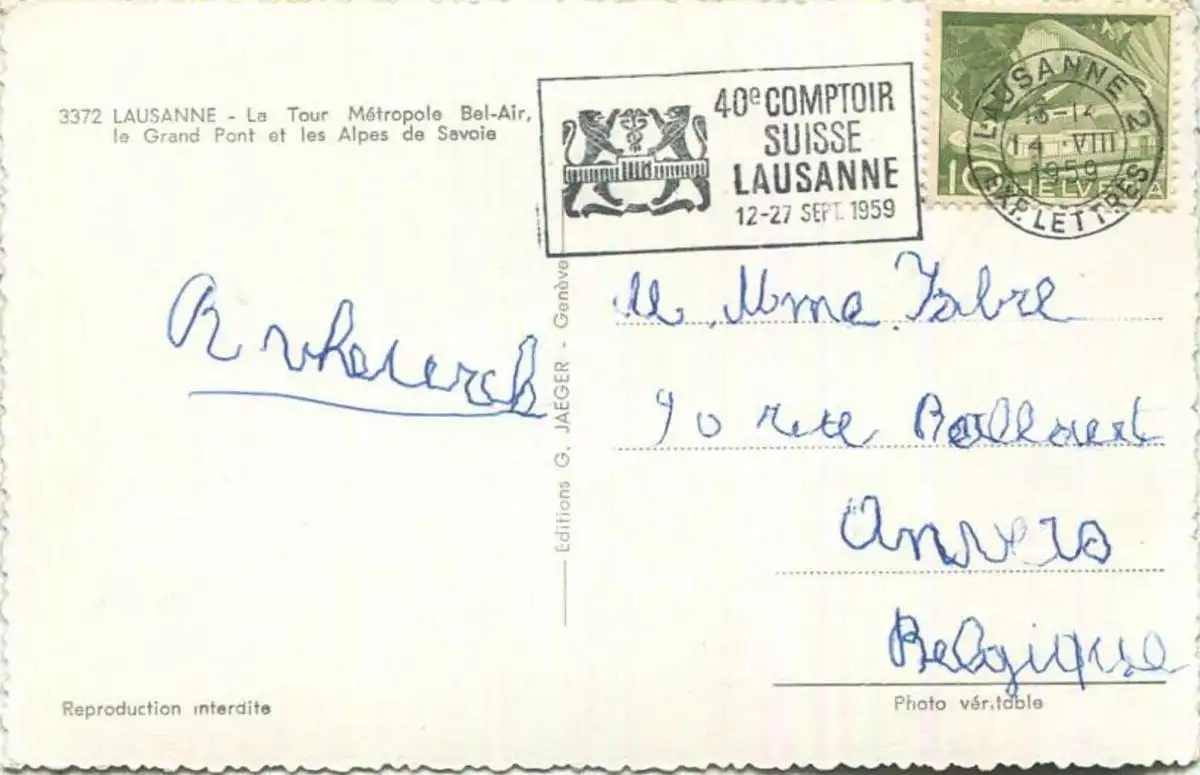 3372 LAUSANNE - La Tour Métropole Bel-Air,
le Grand Pont et les Alpes de Savoie
40e COMPTOIR
SUISSE
LAUSANNE
12-27 SEPT. 1959
LAUSANNE 2
VIII
1959
EXP. LETTRES
10 HELVETIA
Editions G. JAEGER - Genève
M. Mma. Fabre
90 rue
Anvers
Belgique
Reproduction interdite
Photo véritable